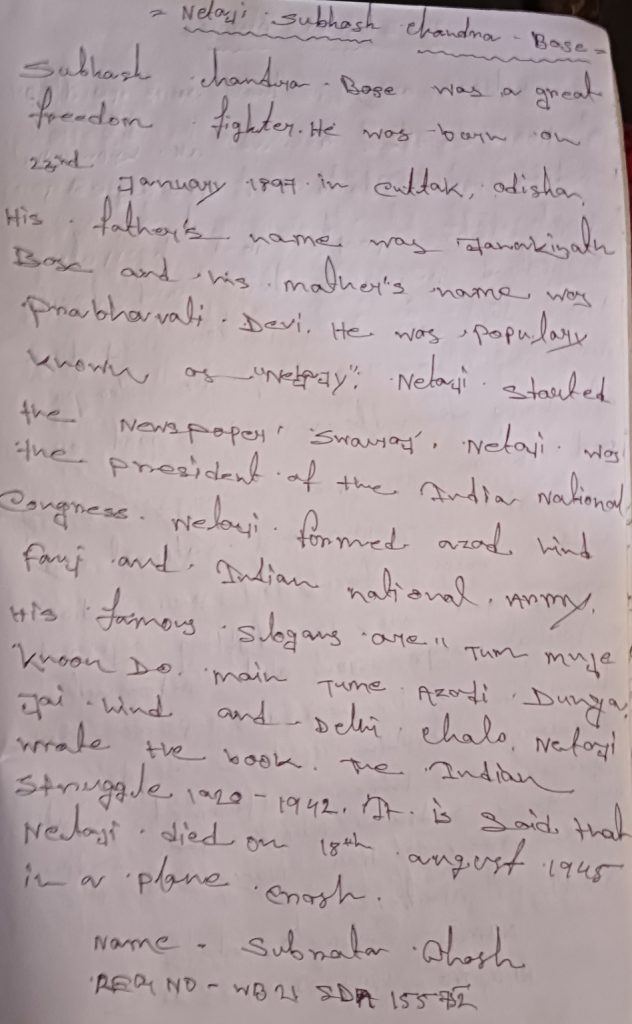 = Netayi Subhash Chandra - Base =
Subhash Chandra - Bose was a great
freedom fighter. He was born on
22nd
January 1897 in cuttak, odisha,
His father's name was Janakinath
Bose and his mother's name was
Prabhavati Devi. He was populary
known as "Netajay". Netayi started
the Newspaper 'Swaraj'. Netayi was
the president of the India National
Congress. Netayi formed azad hind
fauj and Indian national Army.
His famous slogans are " Tum muje
Khoon Do main Tume Azadi Dunga,
Jai hind and Delhi chalo. Netayi
wrote the book. The Indian
Struggle 1920 - 1942. It is said that
Netayi died on 18th august 1945
in a plane crash.
Name - Subrata Ghosh
REG NO - WB 21 SDA 155